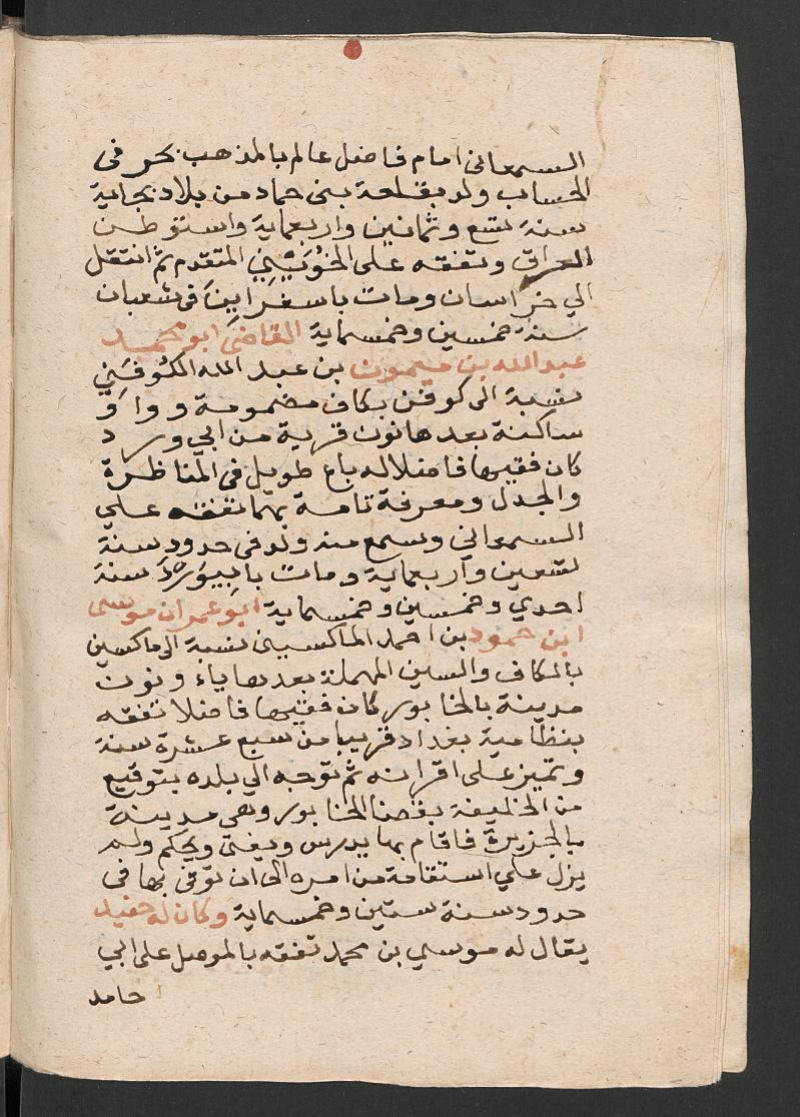 السمعاني امام فاضل عالم بالمذهب بحر في
الحساب ولد بقلعة بني حماد من بلاد بجاية
سنة تسع وثمانين واربعماية واستوطن
العراق وتفقه على الخُوَيِّيْني المتقدم ثم انتقل
الي خراسان ومات باسفراين في شعبان
سنة خمسين وخمسماية القاضي ابو محمد
عبد الله بن ميمون بن عبد الله الكُوفَني
نسبة الى كوفن بكاف مضمومة وواو
ساكنة بعدها نون قرية من ابي ورد
كان فقيها فاضلا له باع طويل في المناظرة
والجدل ومعرفة تامة بهما تفقه علي
السمعاني وسمع منه ولد في حدود سنة
تسعين واربعماية ومات بابيورد سنة
احدي وخمسين وخمسماية ابو عمران موسى
ابن حمود بن احمد الماكسيني نسبة الى ماكسين
بالكاف والسين المهملة بعدها ياء ونون
مدينة بالخابور كان فقيها فاضلا تفقه
بنظامية بغداد قريبا من سبع عشرة سنة
وتميز على اقرانه ثم توجه الي بلده بتوقيع
من الخليفة بقضا الخابور وهي مدينة
بالجزيرة فاقام بها يدرس ويفتي ويحكم ولم
يزل علي استقامة من امره الى ان توفي بها في
حدود سنة ستين وخمسماية وكان له حفيد
يقال له موسي بن محمد تفقه بالموصل على ابي
حامد